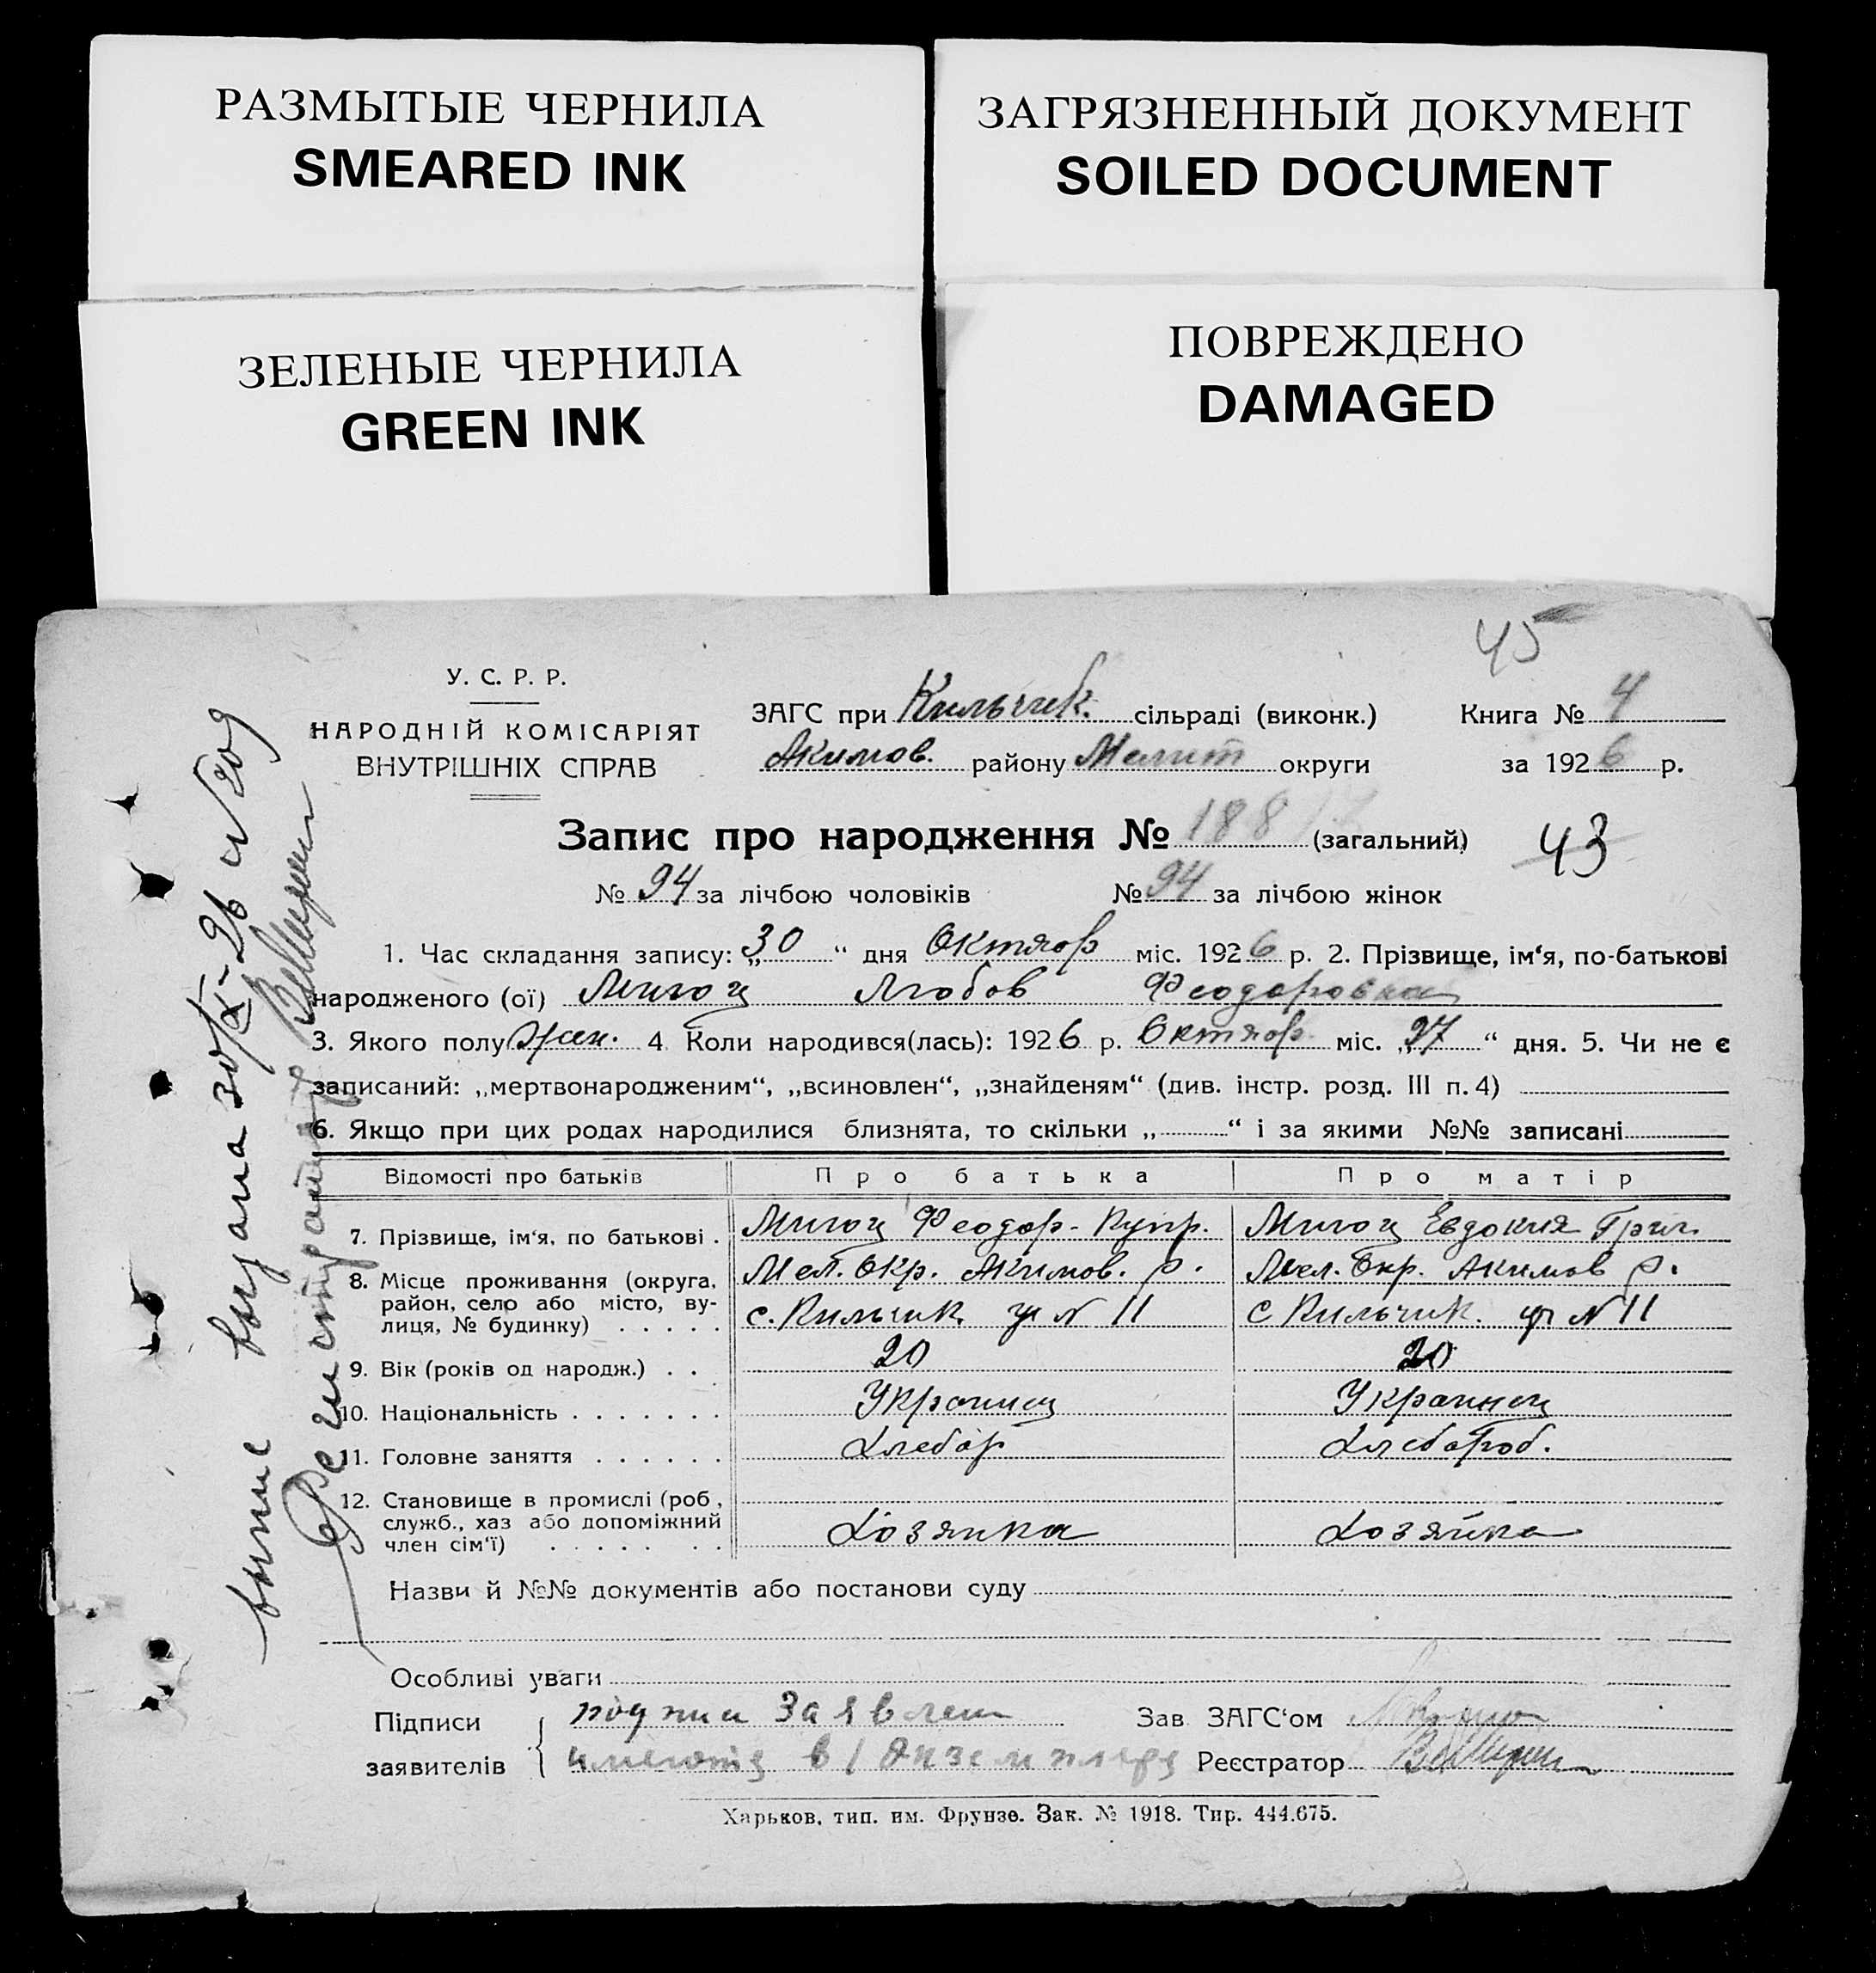 РАЗМЫТЫЕ ЧЕРНИЛА
SMEARED INK
ЗАГРЯЗНЕННЫЙ ДОКУМЕНТ
SOILED DOCUMENT
ЗЕЛЕНЫЕ ЧЕРНИЛА
GREEN INK
ПОВРЕЖДЕНО
DAMAGED
45
У. С. Р. Р.
НАРОДНІЙ КОМІСАРІЯТ
ВНУТРІШНІХ СПРАВ
ЗАГС при Кильчик. сільраді (виконк.) Книга № 4
Акимов. району Мелит округи за 1926 р.
Запис про народження № 188 (загальний)
43
№ 94 за лічбою чоловіків № 94 за лічбою жінок
1. Час складання запису: „30“ дня Октяор міс. 1926 р. 2. Прізвище, ім‘я, по-батькові
народженого (ої) Любов Феодоровна
3. Якого полу жен. 4 Коли народився(лась): 1926 р. Октяор міс. „27“ дня. 5. Чи не є
записаний: „мертвонародженим“, „всиновлен“, „знайденям“ (див. інстр. розд. III п. 4)
6. Якщо при цих родах народилися близнята, то скільки „ “ і за якими №№ записані
Відомості про батьків Про батька Про матір
7. Прізвище, ім‘я, по батькові . Феодор. Купр. Евдокия Григ.
8. Місце проживання (округа, Мел. Окр. Акимов. р. Мел. Окр. Акимов р.
район, село або місто, ву-
лиця, № будинку) . . . . . с. Кильчик. № 11 с Кильчик. № 11
9. Вік (років од народж.) . . . 20 20
10. Національність . . . . . . . Украинец Украинец
11. Головне заняття . . . . . . Хлебор Хлебороб.
12. Становище в промислі (роб,
служб., хаз або допоміжний Хозяика Хозяйка
член сім‘ї) . . . . . . .
Назви й №№ документів або постанови суду
Особливі уваги
Підписи подписи Заявлен Зав ЗАГС‘ом
заявителів имеютц в 1 Экземпляре Реєстратор
Харьков, тип. им. Фрунзе. Зак. № 1918. Тир. 444.675.
выдана 30/X-26
Регистратор